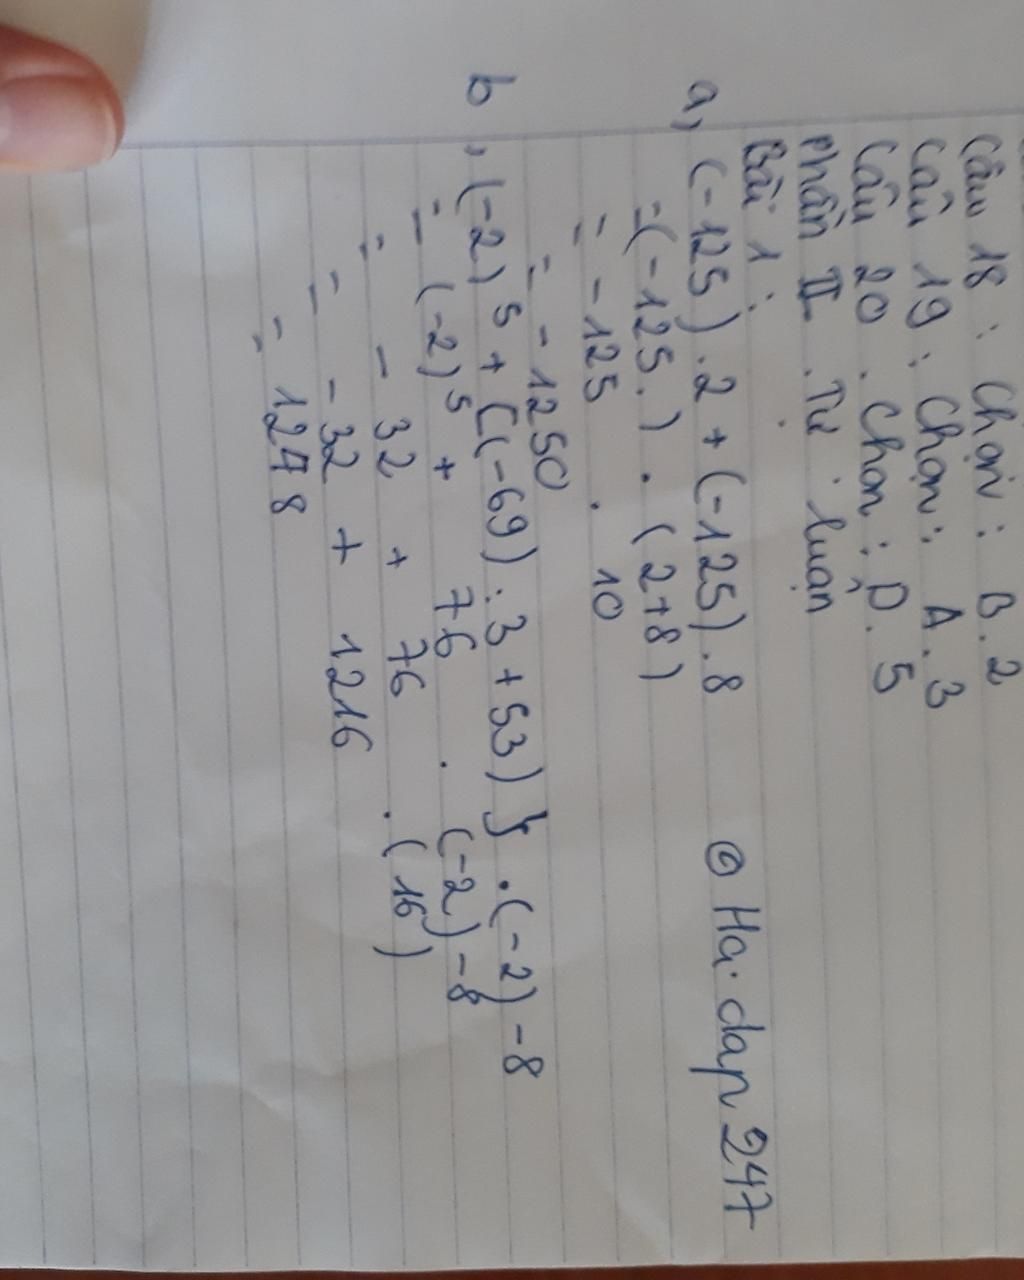 Câu 18 : Chọn : B. 2
Câu 19 : Chọn : A. 3
Câu 20 . Chọn : D. 5
Phần II . Tự luận
Bài 1 :
a, (-125) . 2 + (-125) . 8
= (-125.) . (2+8)
= -125 . 10
= -1250
b, (-2)⁵ + {(-69) : 3 + 53)} . (-2) - 8
= (-2)⁵ + 76 . (-2) - 8
= - 32 + 76 . (16)
= - 32 + 1216
= 1248
@ Hoi dap 247